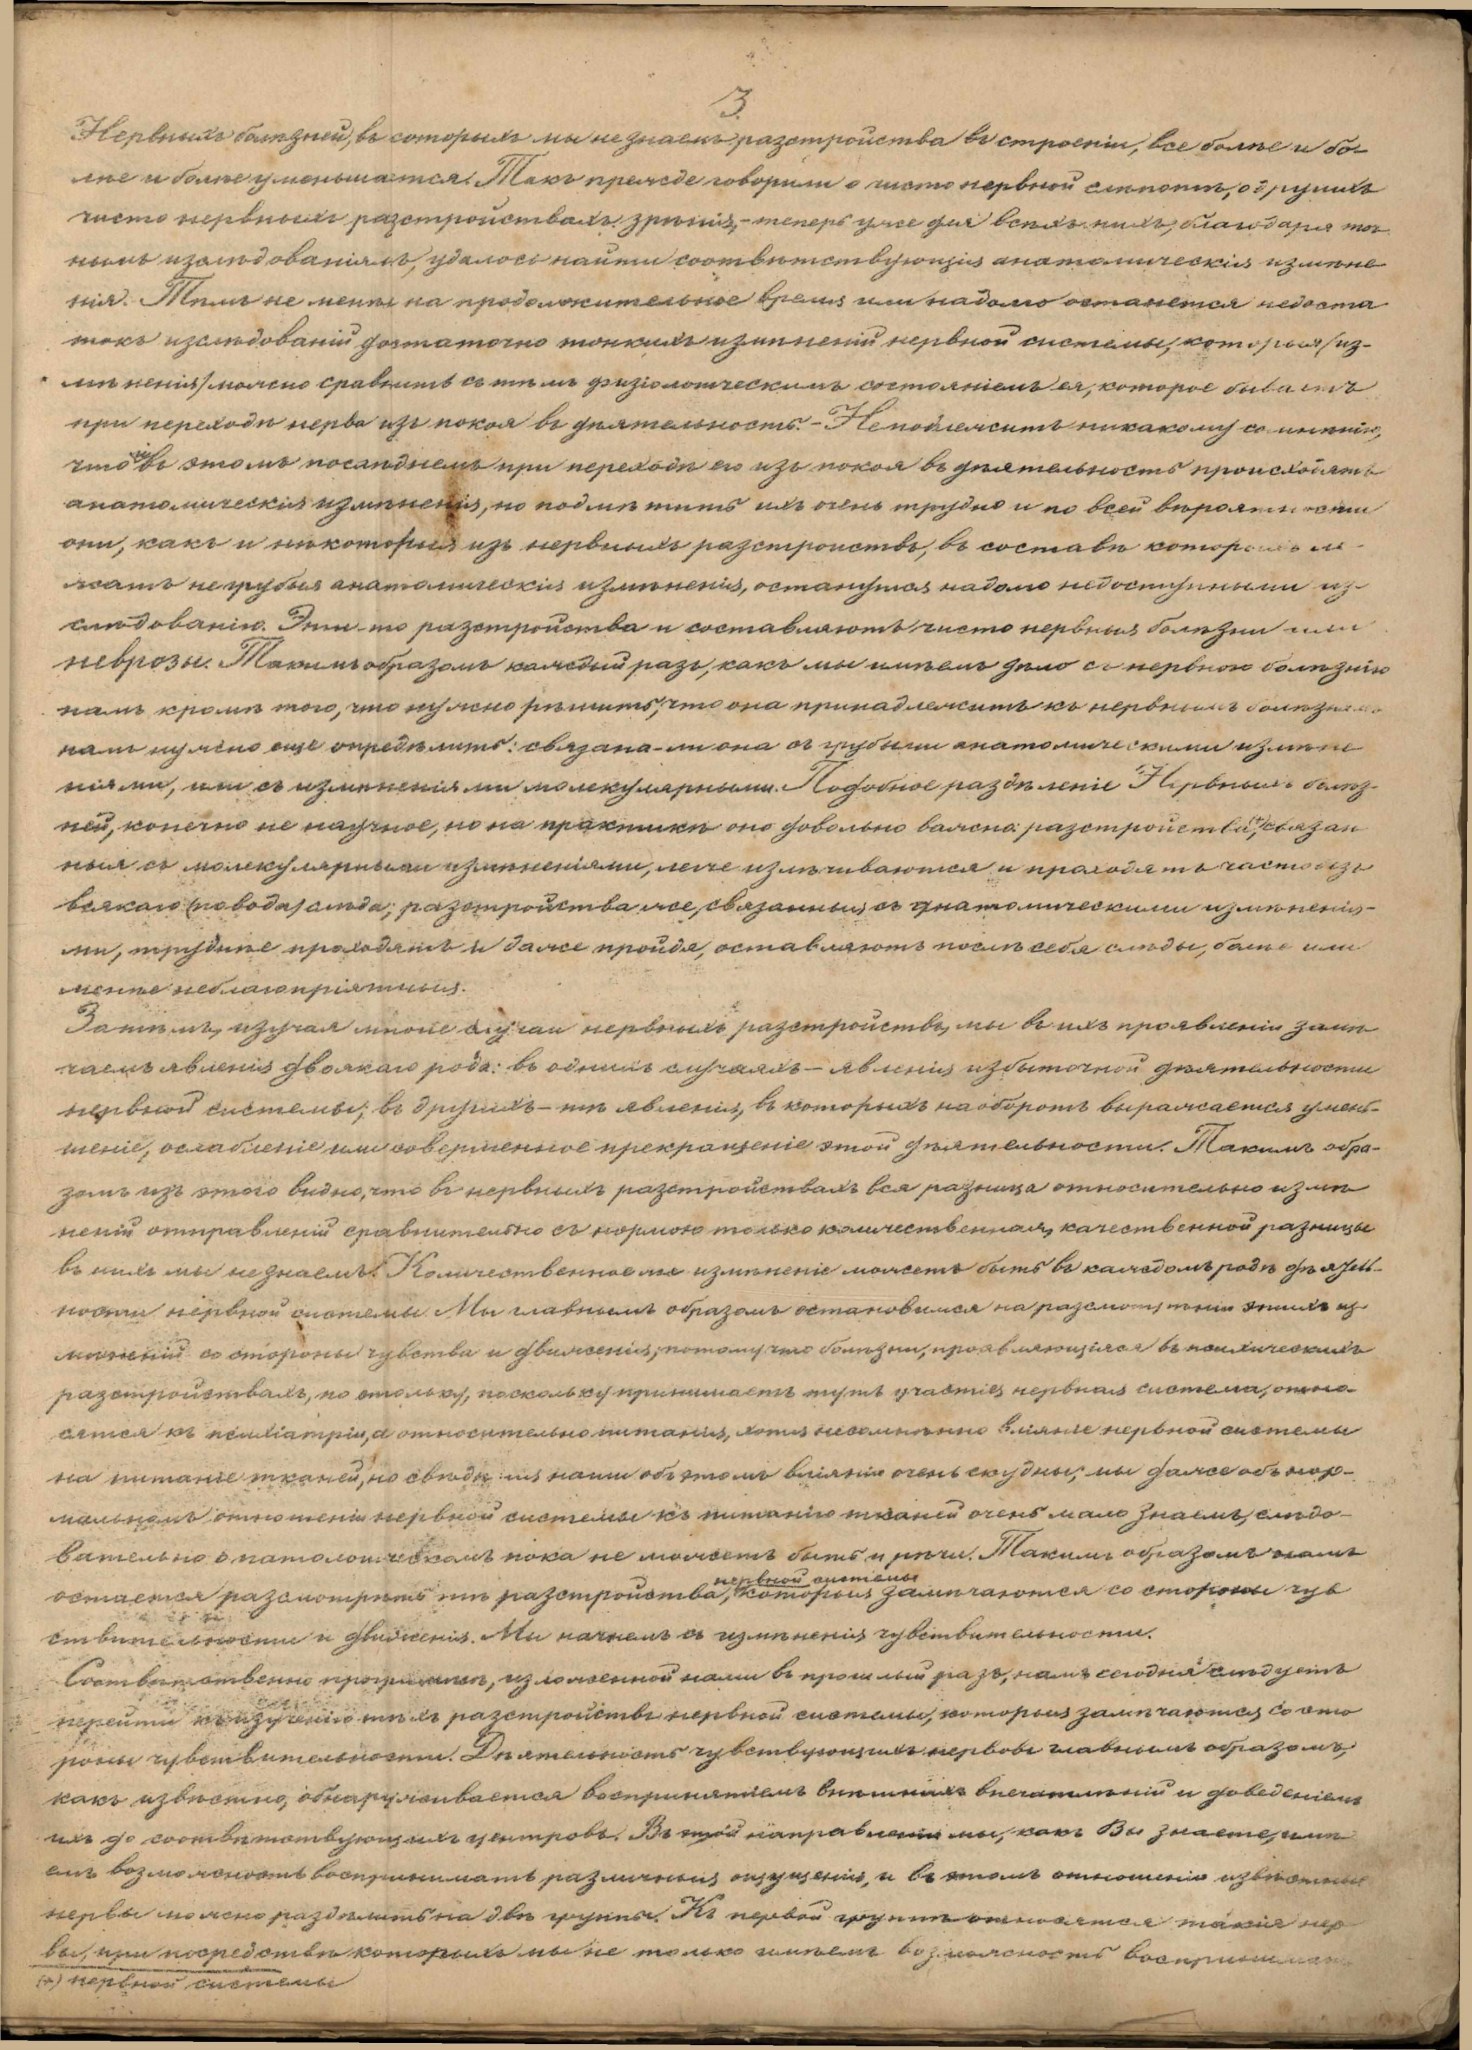 3.
Нервныхъ болѣзней, въ которыхъ мы не знаемъ разстройства въ строеніи, все болѣе и бо-
лѣе и болѣе уменьшается. Такъ прежде говорили о чисто нервной слѣпотѣ, о другихъ
чисто нервныхъ разстройствахъ зрѣнія, – теперь уже для всѣхъ нихъ, благодаря точ
нымъ изслѣдованіямъ, удалось найти соотвѣтствующія анатомическія измѣне
нія. Тѣмъ не менѣе на продолжительное время или надолго останется недоста
токъ изслѣдованій достаточно тонкихъ измѣненій нервной системы, которыя (из-
мѣненія) можно сравнить съ тѣмъ физіологическимъ состояніемъ ея, которое бываетъ
при переходѣ нерва изъ покоя въ дѣятельность. – Неподлежитъ никакому сомнѣнію,
что въ этомъ послѣднемъ при переходѣ его изъ покоя въ дѣятельность происходятъ
анатомическія измѣненія, но подмѣтить ихъ очень трудно и по всей вѣроятности
они, какъ и нѣкоторыя изъ нервныхъ разстройствъ, въ составѣ которыхъ ле-
жатъ негрубыя анатомическія измѣненія, останутся надолго недоступными из-
слѣдованію. Эти-то разстройства и составляютъ чисто нервныя болѣзни или
неврозы. Такимъ образомъ каждый разъ, какъ мы имѣемъ дѣло съ нервною болѣзнію
намъ кромѣ того, что нужно рѣшить, что она принадлежитъ къ нервнымъ болѣзнямъ
намъ нужно еще опредѣлить: связана-ли она съ грубыми анатомическими измѣне
ніями, или съ измѣненіями молекулярными. Подобное раздѣленіе Нервныхъ болѣз-
ней, конечно не научное, но на практикѣ оно довольно важно: разстройства, (+) связан
ныя съ молекулярными измѣненіями, легче излѣчиваются и проходятъ часто безъ
всякаго (повода) слѣда; разстройства же, связанныя съ анатомическими измѣнені-
ми, труднѣе проходятъ и даже пройдя, оставляютъ послѣ себя слѣды, болѣе или
менѣе неблагопріятныя.
Затѣмъ, изучая многіе случаи нервныхъ разстройствъ, мы въ ихъ проявленіи замѣ
чаемъ явленія двоякаго рода: въ однихъ случаяхъ – явленія избыточной дѣятельности
нервной системы; въ другихъ – тѣ явленія, въ которыхъ наоборотъ выражается умень-
шеніе, ослабленіе или совершенное прекращеніе этой дѣятельности. Такимъ обра-
зомъ изъ этого видно, что въ нервныхъ разстройствахъ вся разница относительно измѣ
неній отправленій сравнительно съ нормою только количественная, качественной разницы
въ нихъ мы не знаемъ. Количественное же измѣненіе можетъ быть въ каждомъ родѣ дѣятель-
ности нервной системы. Мы главнымъ образомъ остановимся на разсмотрѣніи этихъ из
мѣненій со стороны чувства и движенія, потому что болѣзни, проявляющіяся въ психическихъ
разстройствахъ, по стольку, поскольку принимаетъ тутъ участіе нервная система, отно-
сятся къ психіатріи, а относительно питанія, хотя несомнѣнно вліяніе нервной системы
на питаніе тканей, но свѣдѣнія наши объ этомъ вліяніи очень скудны; мы даже объ нор-
мальномъ отношеніи нервной системы къ питанію тканей очень мало знаемъ, слѣдо-
вательно о патологическомъ пока не можетъ быть и рѣчи. Такимъ образомъ намъ
остается разсмотрѣть тѣ разстройства нервной системы, которыя замѣчаются со стороны чув
ствительности и движенія. Мы начнемъ съ измѣненія чувствительности.
Соотвѣтственно программѣ, изложенной нами въ прошлый разъ, намъ сегодня слѣдуетъ
перейти къ изученію тѣхъ разстройствъ нервной системы, которыя замѣчаются со сто
роны чувствительности. Дѣятельность чувствующихъ нервовъ главнымъ образомъ,
какъ извѣстно, обнаруживается воспринятіемъ внѣшнихъ впечатлѣній и доведеніемъ
ихъ до соотвѣтствующихъ центровъ. Въ этой направленіи мы, какъ Вы знаете, имѣ
емъ возможность воспринимать различныя ощущенія, и въ этомъ отношеніи извѣстные
нервы можно раздѣлить на двѣ группы. Къ первой группѣ относятся такіе нер
вы, при посредствѣ которыхъ мы не только имѣемъ возможность воспринимать
(+) нервной системы